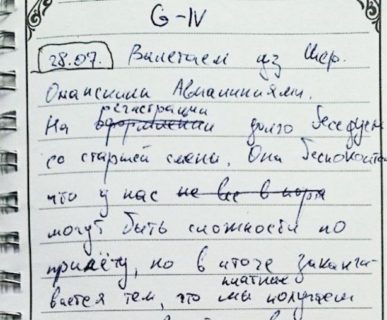 G-IV
28.07. Вылетаем из Шер.
Оманскими Авиалиниями.
регистрации
На оформлении долго беседуем
со старшей смены. Она беспокоится
что у нас не все в поря
могут быть сложности по
прилёту, но в итоге заканчи-
платные
вается тем, что мы получаем